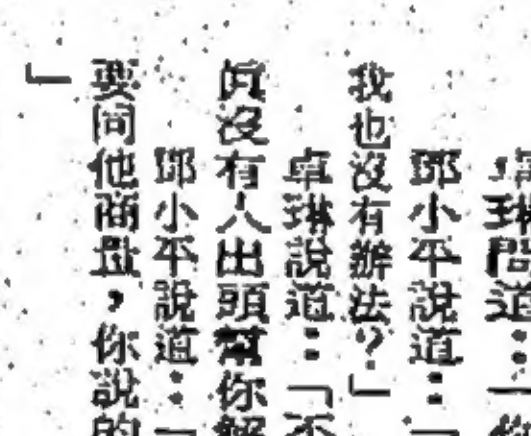 卓琳問道：「你
鄧小平說道：「
我也沒有辦法？」
卓琳說道：「否
真沒有人出頭幫你解
鄧小平說道：「
要同他商量，你說的
」